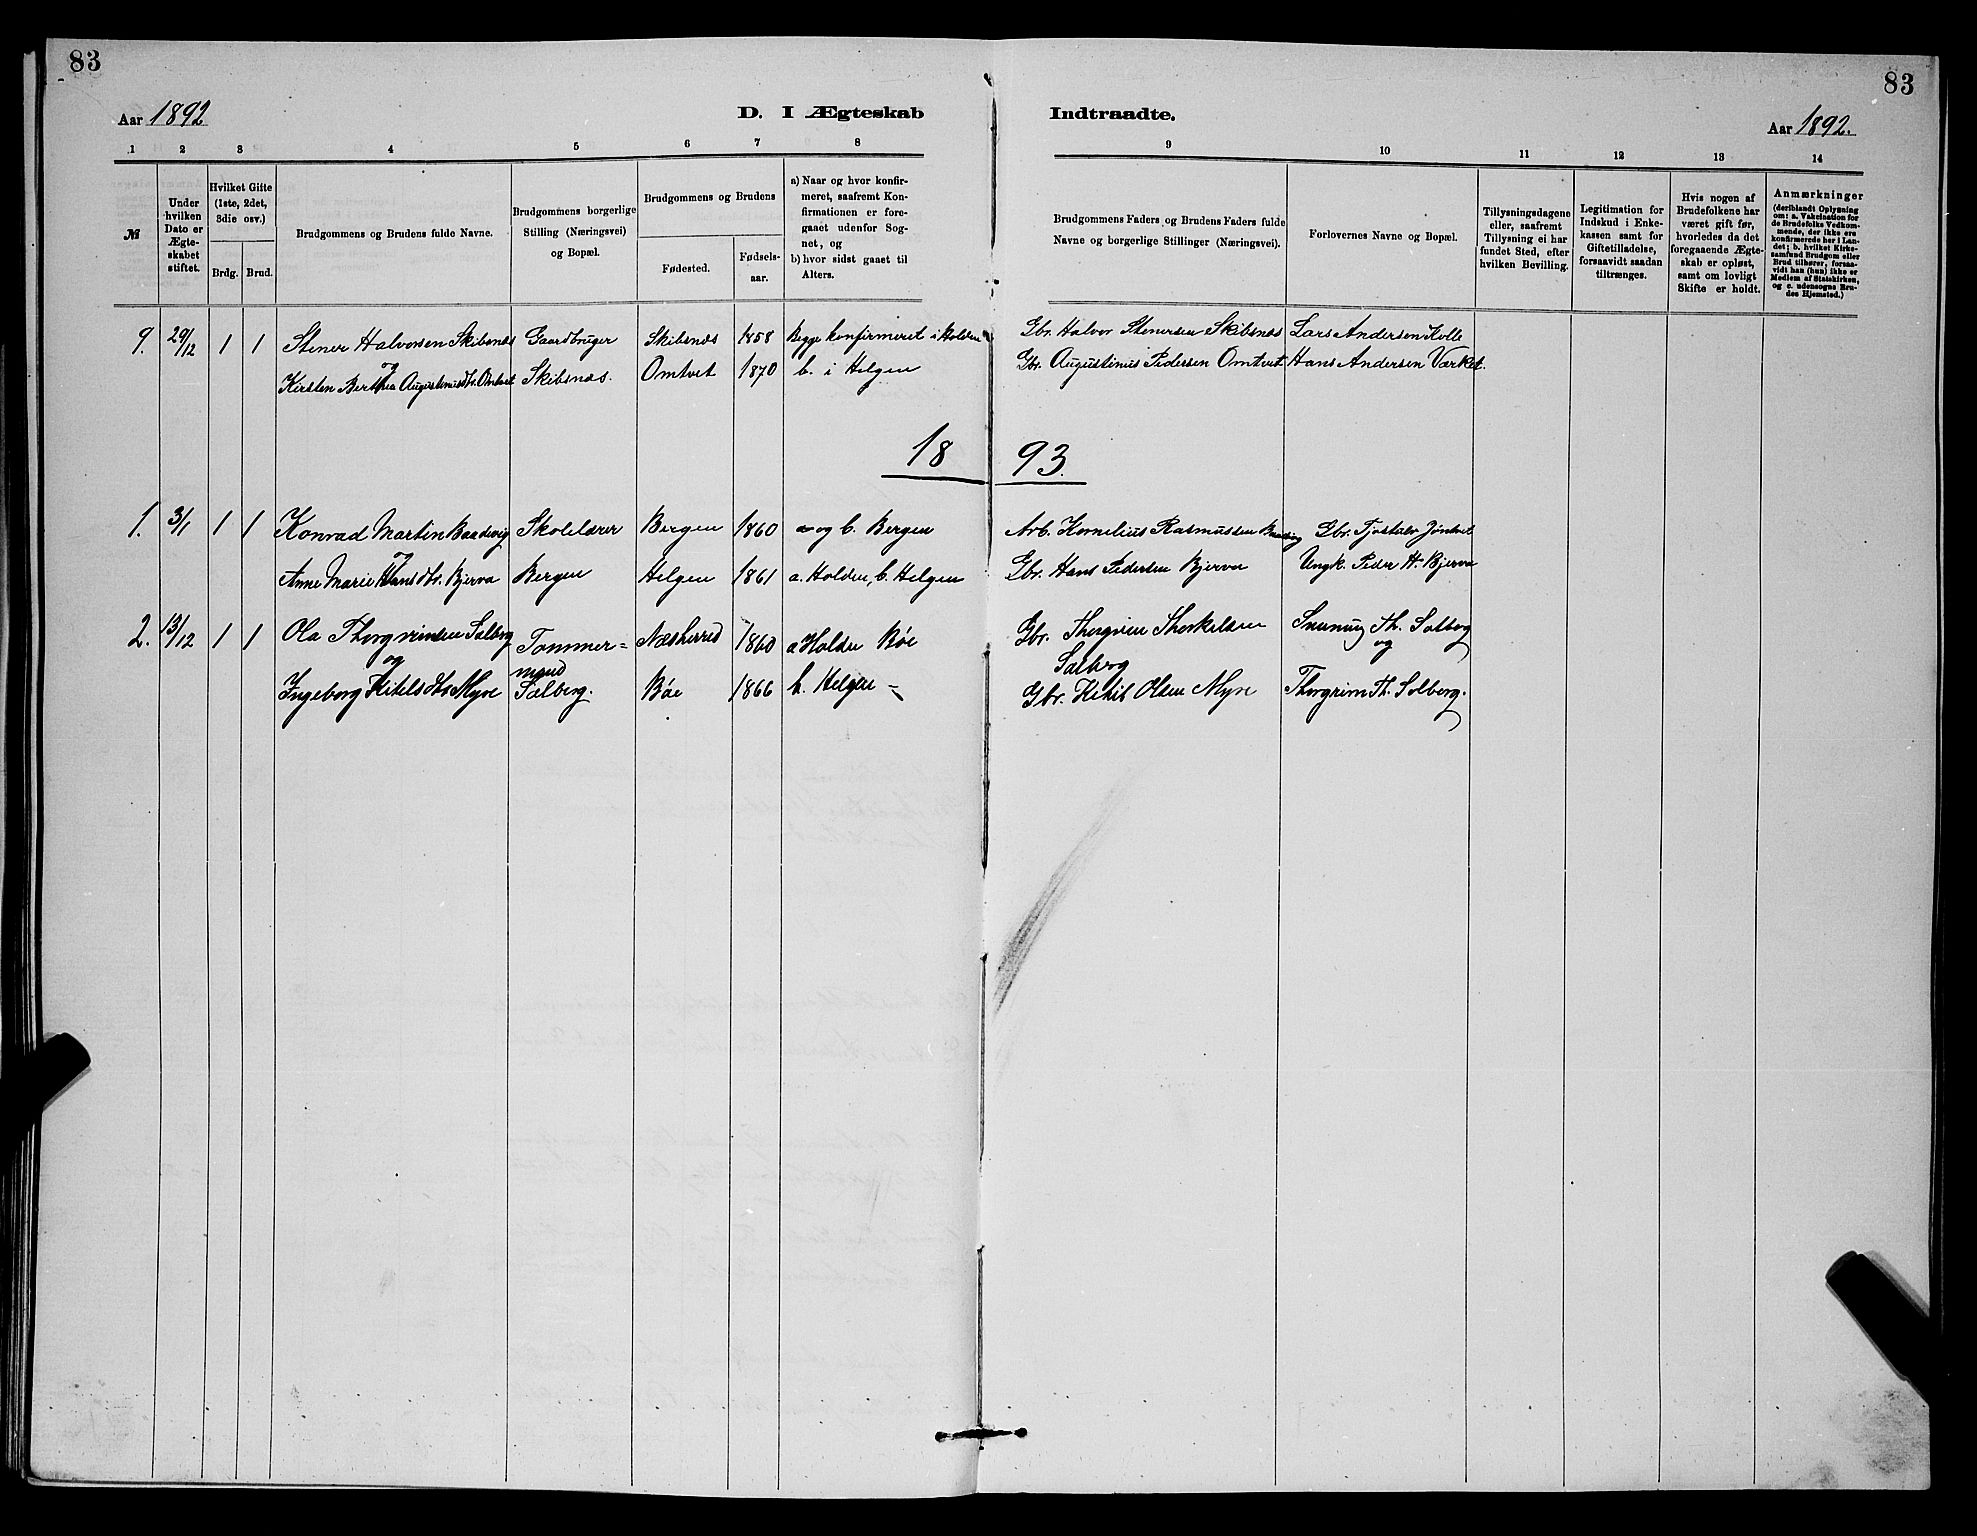 83
83
Aar 1892
D. I Ægteskab
Indtraadte.
Aar 1892.
1 2 3 4 5 6 7 8
9 10 11 12 13 14
№
Under hvilken Dato er Ægteskabet stiftet.
Hvilket Gifte (1ste, 2det, 3die osv.)
Brdg. Brud.
Brudgommens og Brudens fulde Navne.
Brudgommens borgerlige Stilling (Næringsvei) og Bopæl.
Brudgommens og Brudens
Fødested.
Fødselsaar.
a) Naar og hvor konfirmeret, saafremt Konfirmationen er foregaaet udenfor Sognet, og
b) hvor sidst gaaet til Alters.
Brudgommens Faders og Brudens Faders fulde Navne og borgerlige Stillinger (Næringsvei).
Forlovernes Navne og Bopæl.
Tillysningsdagene eller, saafremt Tillysning ei har fundet Sted, efter hvilken Bevilling.
Legitimation for Indskud i Enkekassen samt for Giftetilladelse, forsaavidt saadan tiltrænges.
Hvis nogen af Brudefolkene har været gift før, hvorledes da det foregaaende Ægteskab er opløst, samt om lovligt Skifte er holdt.
Anmærkninger
(deriblandt Oplysning om: a. Vakcination for de Brudefolks Vedkommende, der ikke ere konfirmerede her i Landet; b. hvilket Kirkesamfund Brudgom eller Brud tilhører, forsaavidt han (hun) ikke er Medlem af Statskirken, og c. udensogns Brudes Hjemsted.)
9. 29/12 1 1 Stener Halvorsen Skibsnæs Gaardbruger Skibsnæs 1858 Begge konfirmeret i Holden Gbr. Halvor Stenersen Skibsnæs Lars Andersen Kolle
og
Kirsten Berthea Augustinusdtr. Omtvet Skibsnæs. Omtvet 1870 b. i Helgen Gbr. Augustinus Pedersen Omtvet Hans Andersen Værket.
18 93.
1. 3/1 1 1 Konrad Martin Baadsvig Skolelærer Bergen 1860 a og b. Bergen Arb. Kornelius Rasmussen Gbr. Tjostulv Jøntvet
og
Anne Marie Hansdtr. Bjerva Bergen Helgen 1861 a. Holden, b. Helgen Gbr. Hans Pedersen Bjerva Ungk. Peder H. Bjerva
2. 13/12 1 1 Ola Thorgrimsen Solberg Tømmer= Næsherred 1860 a Holden Bøe Gbr. Thorgrim Therkelsen Th. Solberg
og mand Solberg og
Ingeborg Kitilsdtr Myre Solberg. Bøe 1866 b. Helgen - Gbr. Kitil Olsen Myre Thorgrim Th. Solberg.